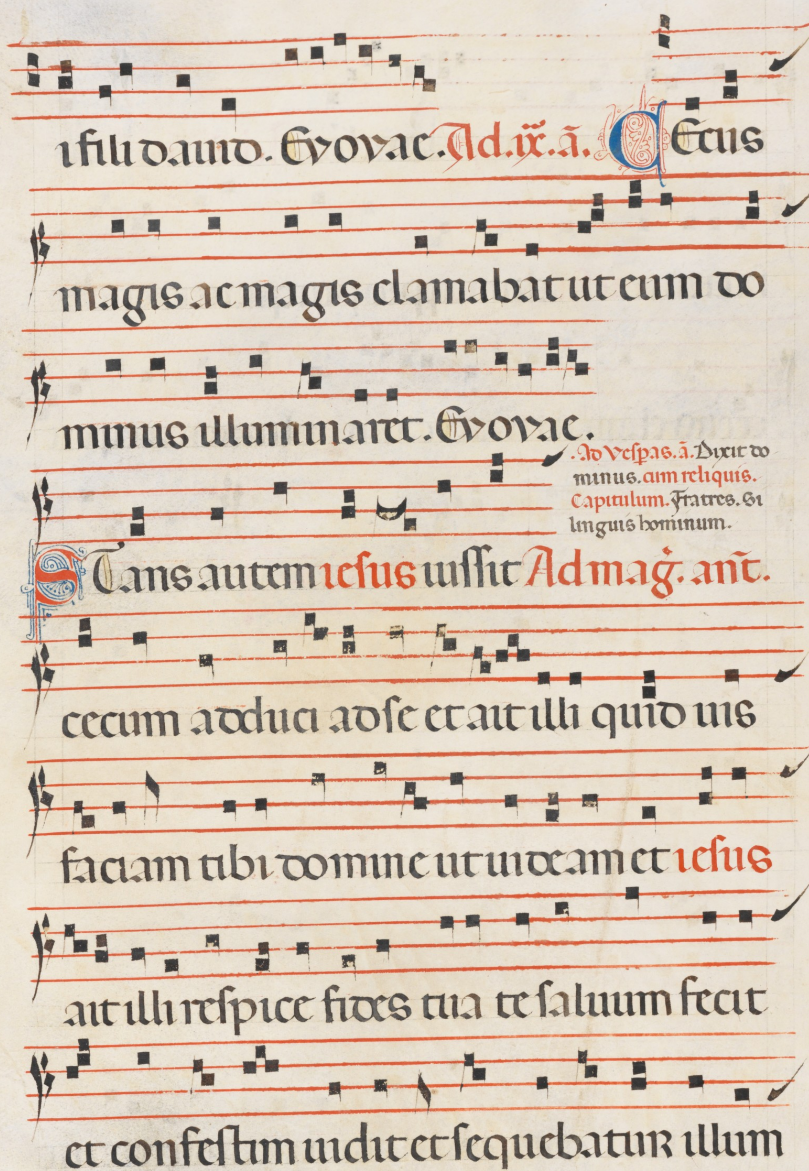 i fili dauid. Evovae. Ad.ix.ā. Cecus
magis ac magis clamabat ut eum do
minus illuminaret. Evovae.
.Ad vespas.ā. Dixit do
minus. cum reliquis.
Capitulum. Fratres. Si
linguis hominum.
Stans autem iesus iussit Ad mag̃. ant̃.
cecum adduci ad se et ait illi quid uis
faciam tibi domine ut uideam et iesus
ait illi respice fides tua te saluum fecit
et confestim uidit et sequebatur illum